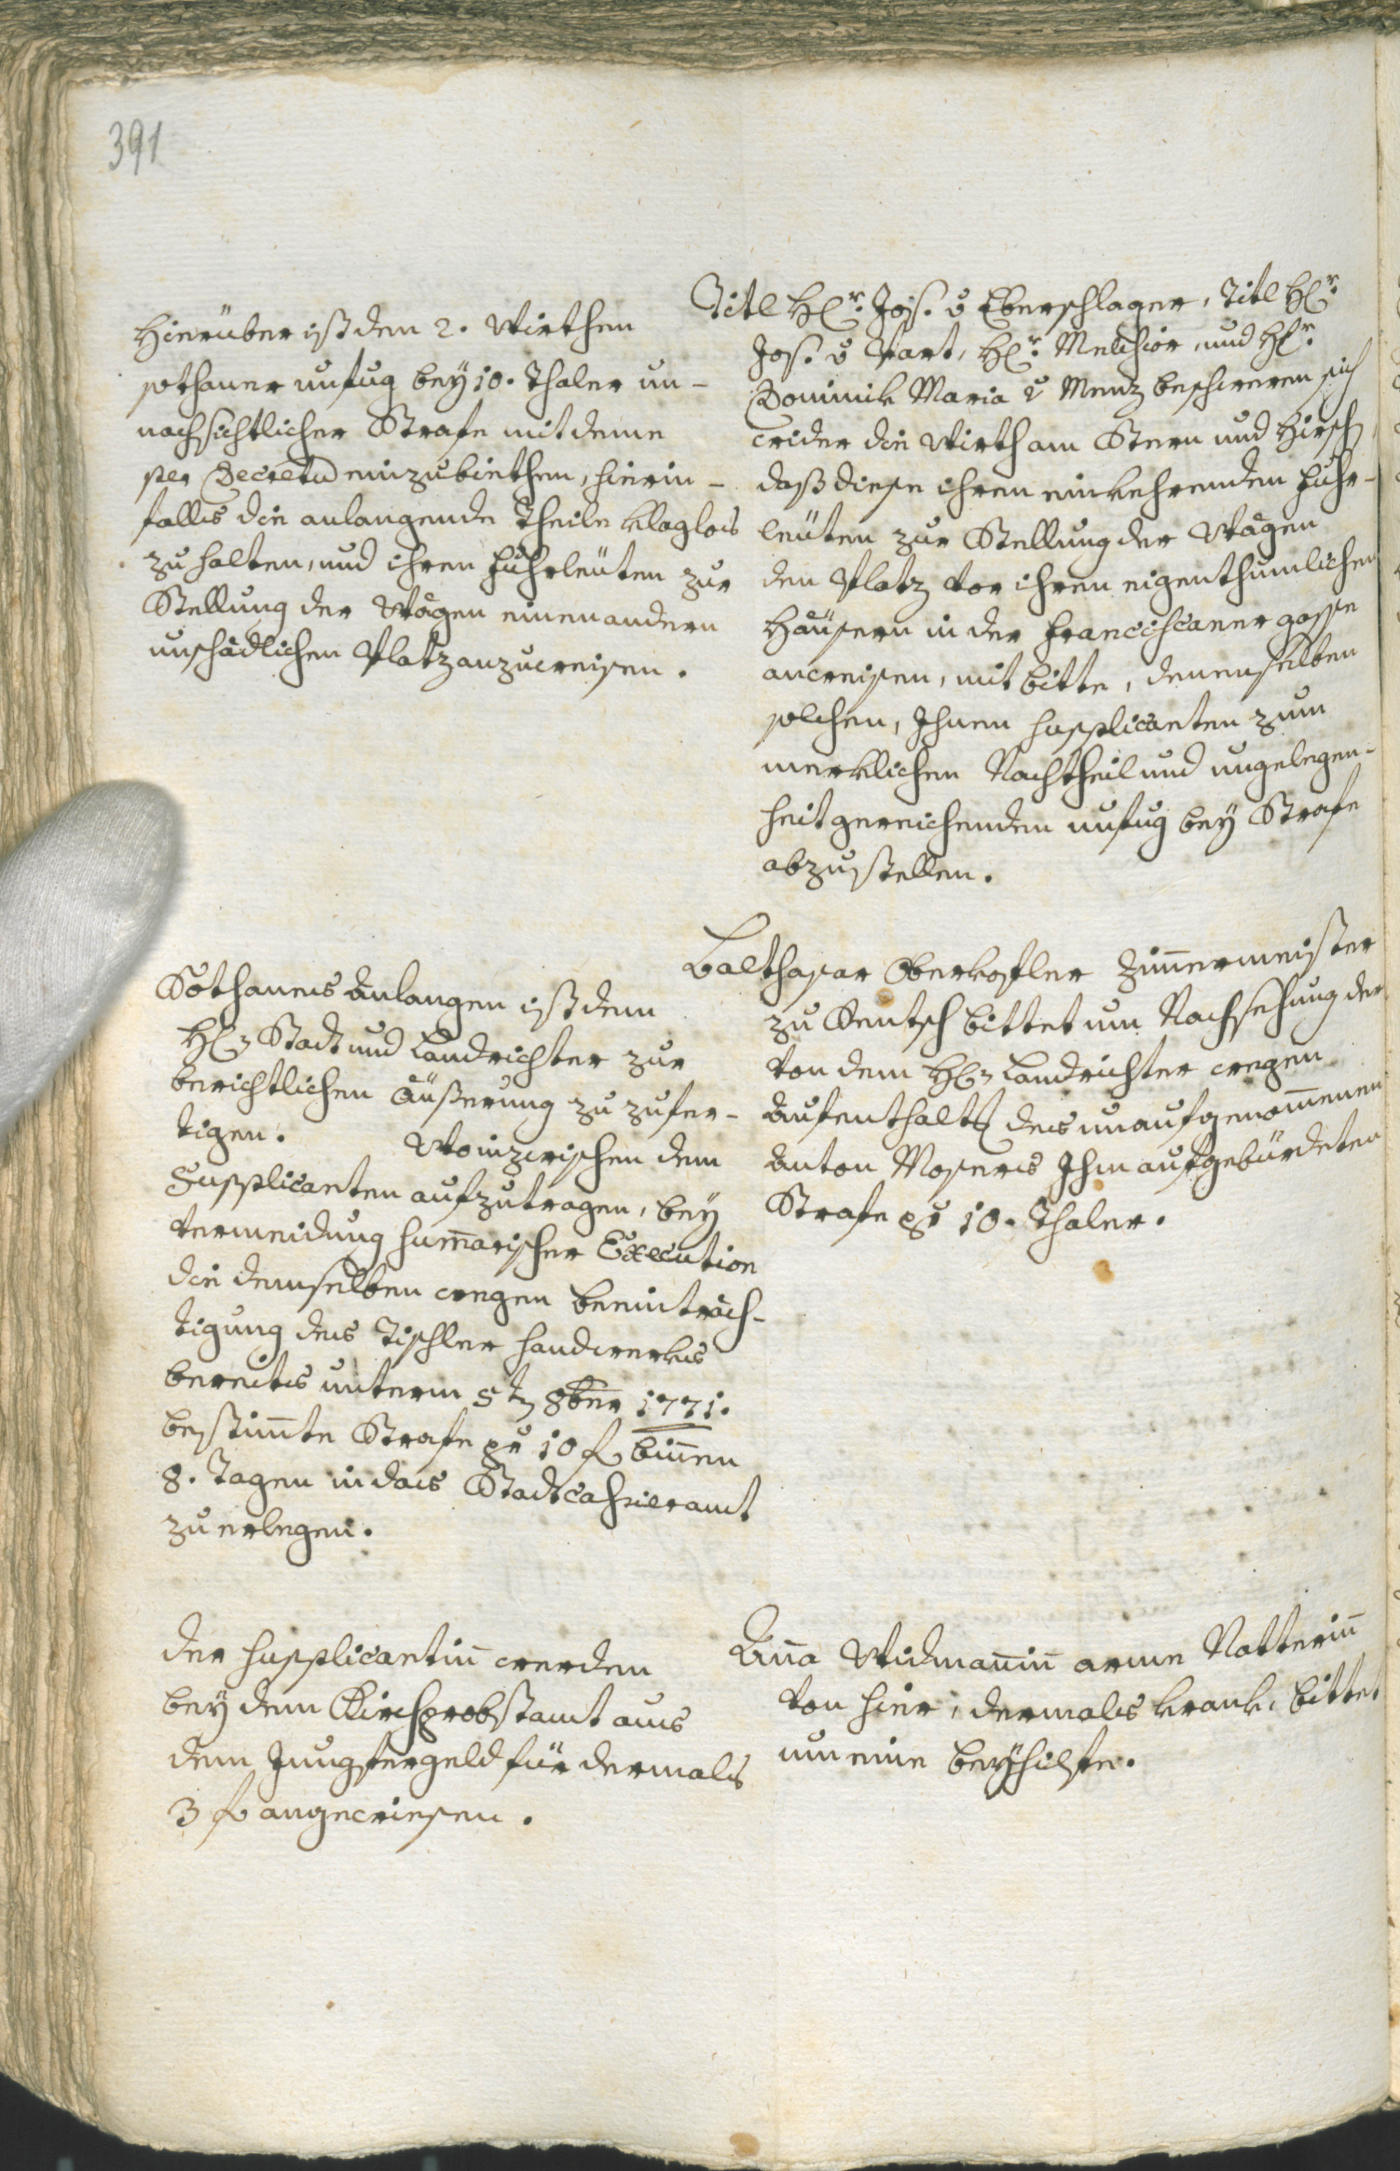 391
Hierüber ist den 2. Wirthen
sothaner unfug bey 10. Thaler un-
nachsichtlicher Strafe mit deme
per Decretu einzubiethen, hierin-
falls die anlangende Theile klaglos
zu halten, und ihren fuhrleuten zur
Stellung der Wägen einen andern
unschädlichen Platz anzuweisen.
Titl H[er]r Jos. v Eberschlager, Titl H[er]r
Jos. v Wart, H[er]r Melchior, und H[er]r
Dominik Maria v Menz beschweren sich
wider die Wirth am Stern und Hirsch,
daß diese ihren einkehrenden fuhr-
leüten zur Stellung der Wägen
den Platz vor ihren eigenthumlichen
Häusern in der franciscaner gasse
anweisen, mit bitte, denenselben
solchen, Ihnen Supplicanten zum
merklichen Nachtheil und ungelegen-
heit gereichenden unfug bey Strafe
abzustellen.
Sothanes Anlangen ist dem
H[errn] Stadt und Landrichter zur
berichtlichen Äußerung zu zufer-
tigen. Woinzwischen dem
Supplicanten aufzutragen, bey
vermeidung sum̄arischer Execution
die demselben wegen beeinträch-
tigung des Tischler handwerks
bereits unterm 5t[en] 8ber 1771.
bestim̄te Strafe pr 10 f bin̄en
8. Tagen in das Stadtcassieramt
zu erlegen.
Balthasar Oberkofler Zim̄ermeister
zu Rentsch bittet um Nachsehung der
von dem H[errn] Landrichter wegen
Aufenthalts des unaufgenom̄enen
Anton Mosers Ihm aufgebürdeten
Strafe pr 10. Thaler.
der Supplicantin̄ werden
bey dem Kirchprobstamt aus
dem Jungfergeld für dermals
3 f angewiesen.
An̄a Widman̄in̄ arme Natterin̄
von hier, dermals krank, bittet
um eine beyhilfe.